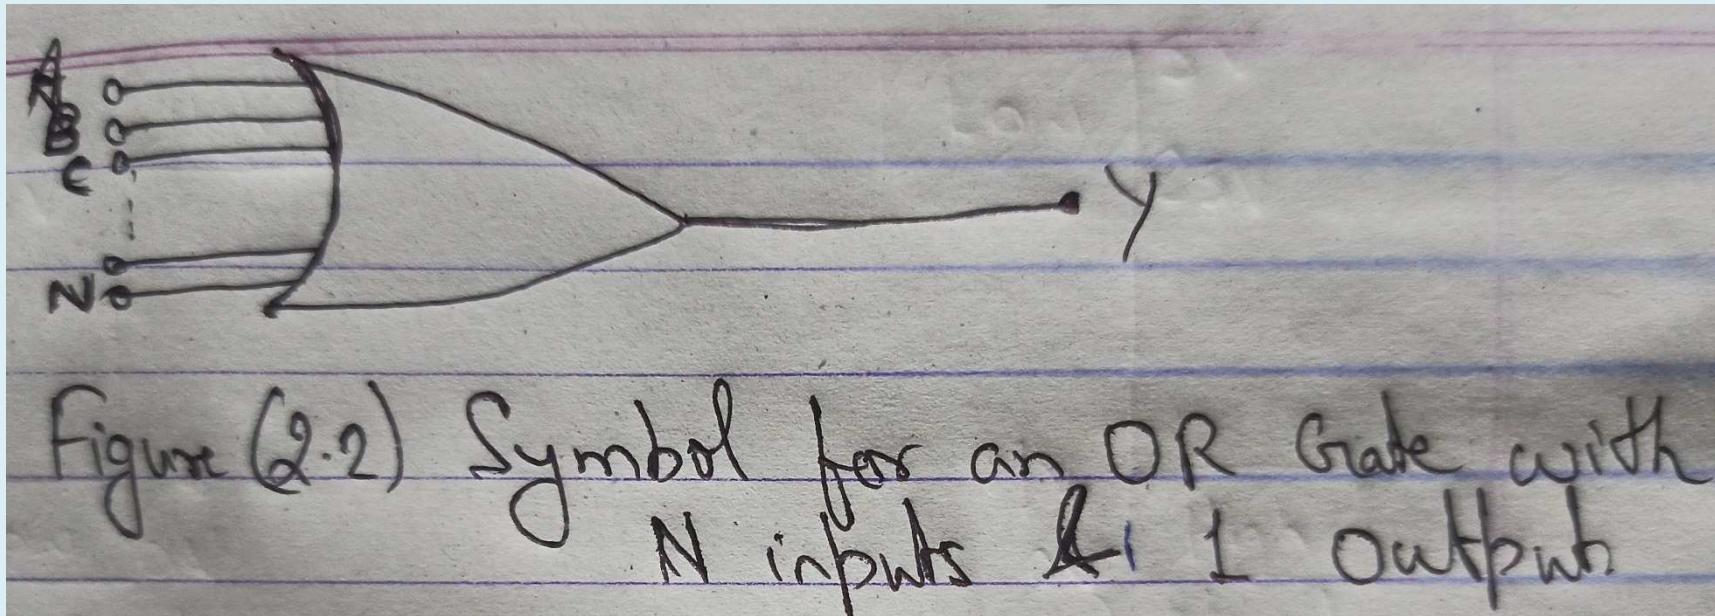 A
B
C
N
Y
Figure (2.2) Symbol for an OR Gate with
N inputs & 1 Output